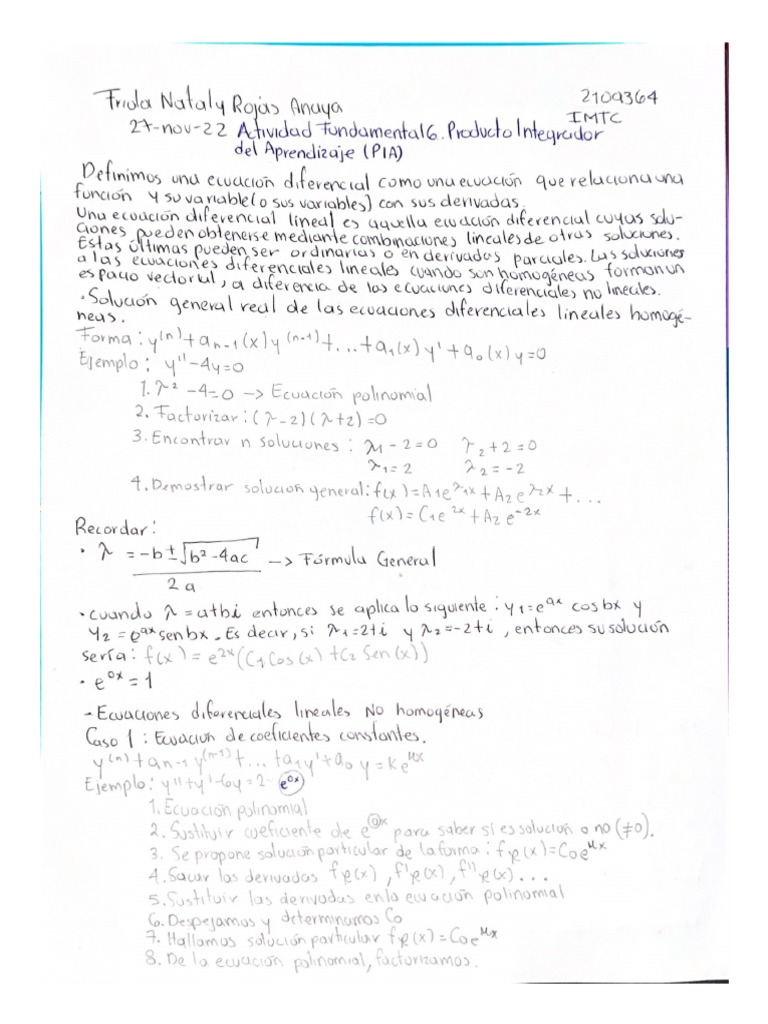 Frida Nataly Rojas Anaya 2109364
27-nov-22 Actividad Fundamental 6. Producto Integrador IMTC
del Aprendizaje (PIA)
Definimos una ecuación diferencial como una ecuación que relaciona una
función y su variable (o sus variables) con sus derivadas.
Una ecuación diferencial lineal es aquella ecuación diferencial cuyas solu-
ciones pueden obtenerse mediante combinaciones lineales de otras soluciones.
Estas últimas pueden ser ordinarias o en derivadas parciales. Las soluciones
a las ecuaciones diferenciales lineales cuando son homogéneas forman un
espacio vectorial, a diferencia de las ecuaciones diferenciales no lineales.
· Solución general real de las ecuaciones diferenciales lineales homogé-
neas.
Forma: y⁽ⁿ⁾+aₙ₋₁(x)y⁽ⁿ⁻¹⁾+...+a₁(x)y'+a₀(x)y=0
Ejemplo: y''-4y=0
1. λ²-4=0 -> Ecuación polinomial
2. Factorizar: (λ-2)(λ+2)=0
3. Encontrar n soluciones: λ₁-2=0 λ₂+2=0
λ₁=2 λ₂=-2
4. Demostrar solución general: f(x)=A₁e^λ₁x+A₂e^λ₂x+...
f(x)=C₁e^2x+A₂e^-2x
Recordar:
· λ = (-b±√(b²-4ac))/2a -> Fórmula General
· cuando λ=a+bi entonces se aplica lo siguiente: y₁=e^ax cos bx y
y₂=e^ax sen bx. Es decir, si λ₁=2+i y λ₂=-2+i, entonces su solución
sería: f(x)=e^2x(C₁Cos(x)+C₂Sen(x))
· e^0x=1
- Ecuaciones diferenciales lineales No homogéneas
Caso 1: Ecuación de coeficientes constantes.
y⁽ⁿ⁾+aₙ₋₁y⁽ⁿ⁻¹⁾+...+a₁y'+a₀y=ke^Mx
Ejemplo: y''+y'-6y=2 e^0x
1. Ecuación polinomial
2. Sustituir coeficiente de e^0x para saber si es solución o no (≠0).
3. Se propone solución particular de la forma: fp(x)=C₀e^Mx
4. Sacar las derivadas fp(x), f'p(x), f''p(x)...
5. Sustituir las derivadas en la ecuación polinomial
6. Despejamos y determinamos C₀
7. Hallamos solución particular fp(x)=C₀e^Mx
8. De la ecuación polinomial, factorizamos.